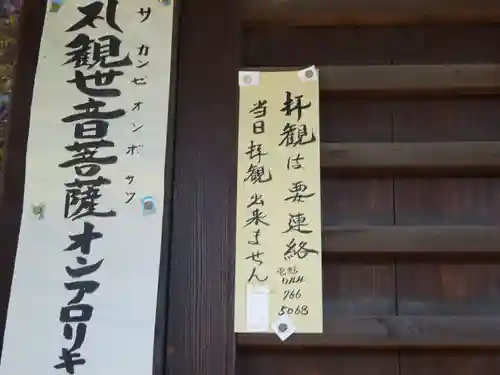 拝観は要連絡
766
5068
当日拝観出来ません
サ カンゼオンボサツ
観世音菩薩オンアロリキ